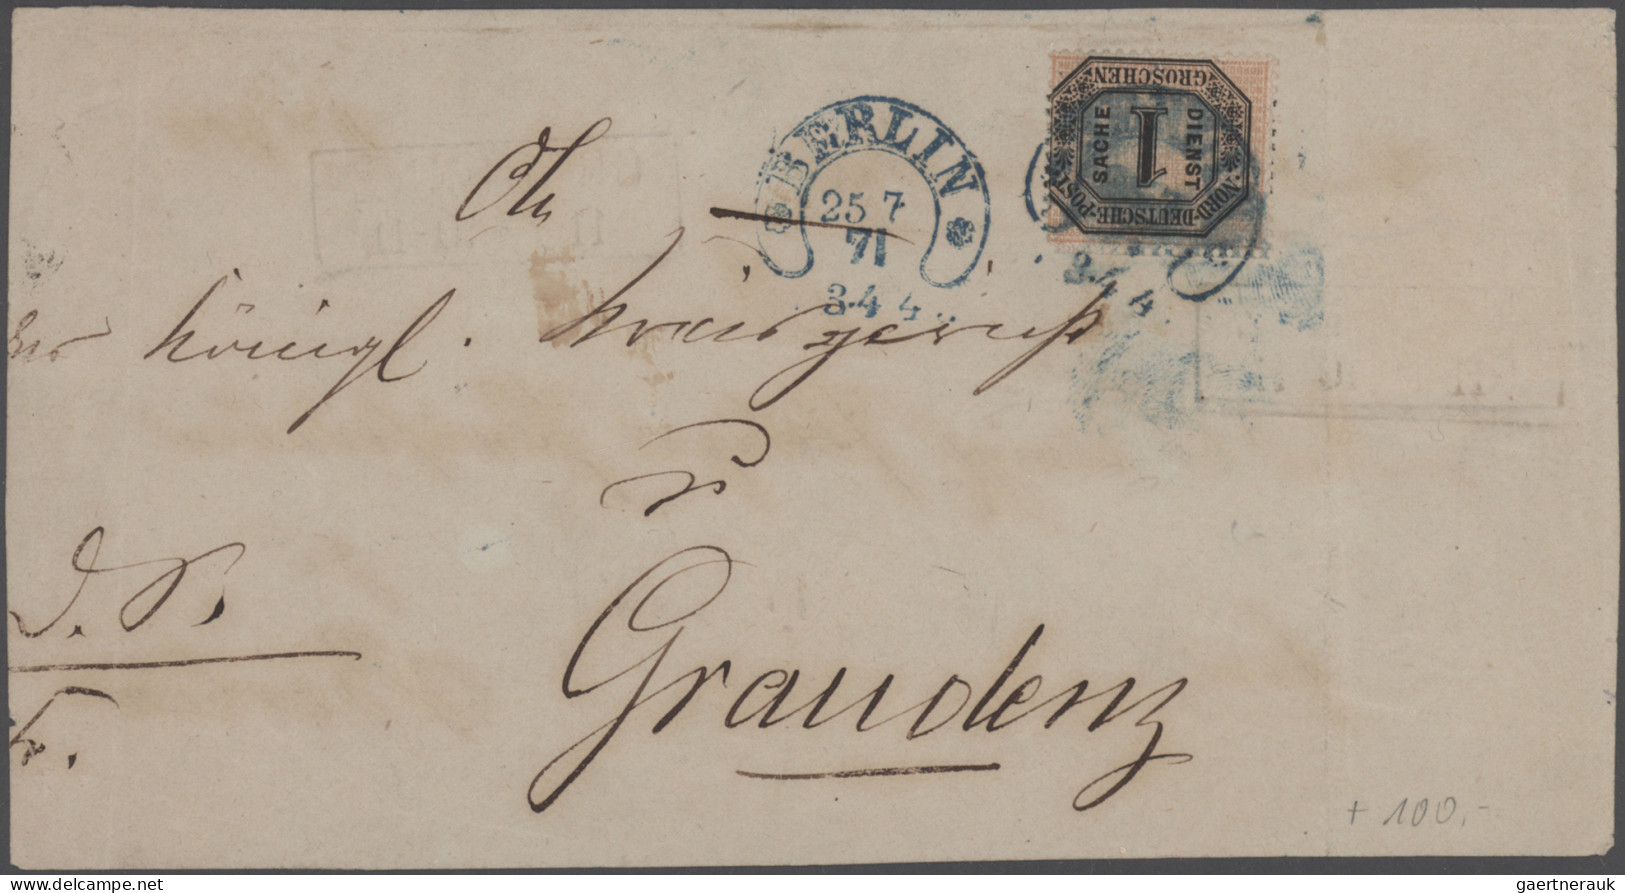 BERLIN
25 7
71
3.4 4
NORD-DEUTSCHE-POST
1
GROSCHEN
DIENST
SACHE
3.4 4.
An
königl. Kreisgericht
Graudenz
+ 100,-
gaertnerauk